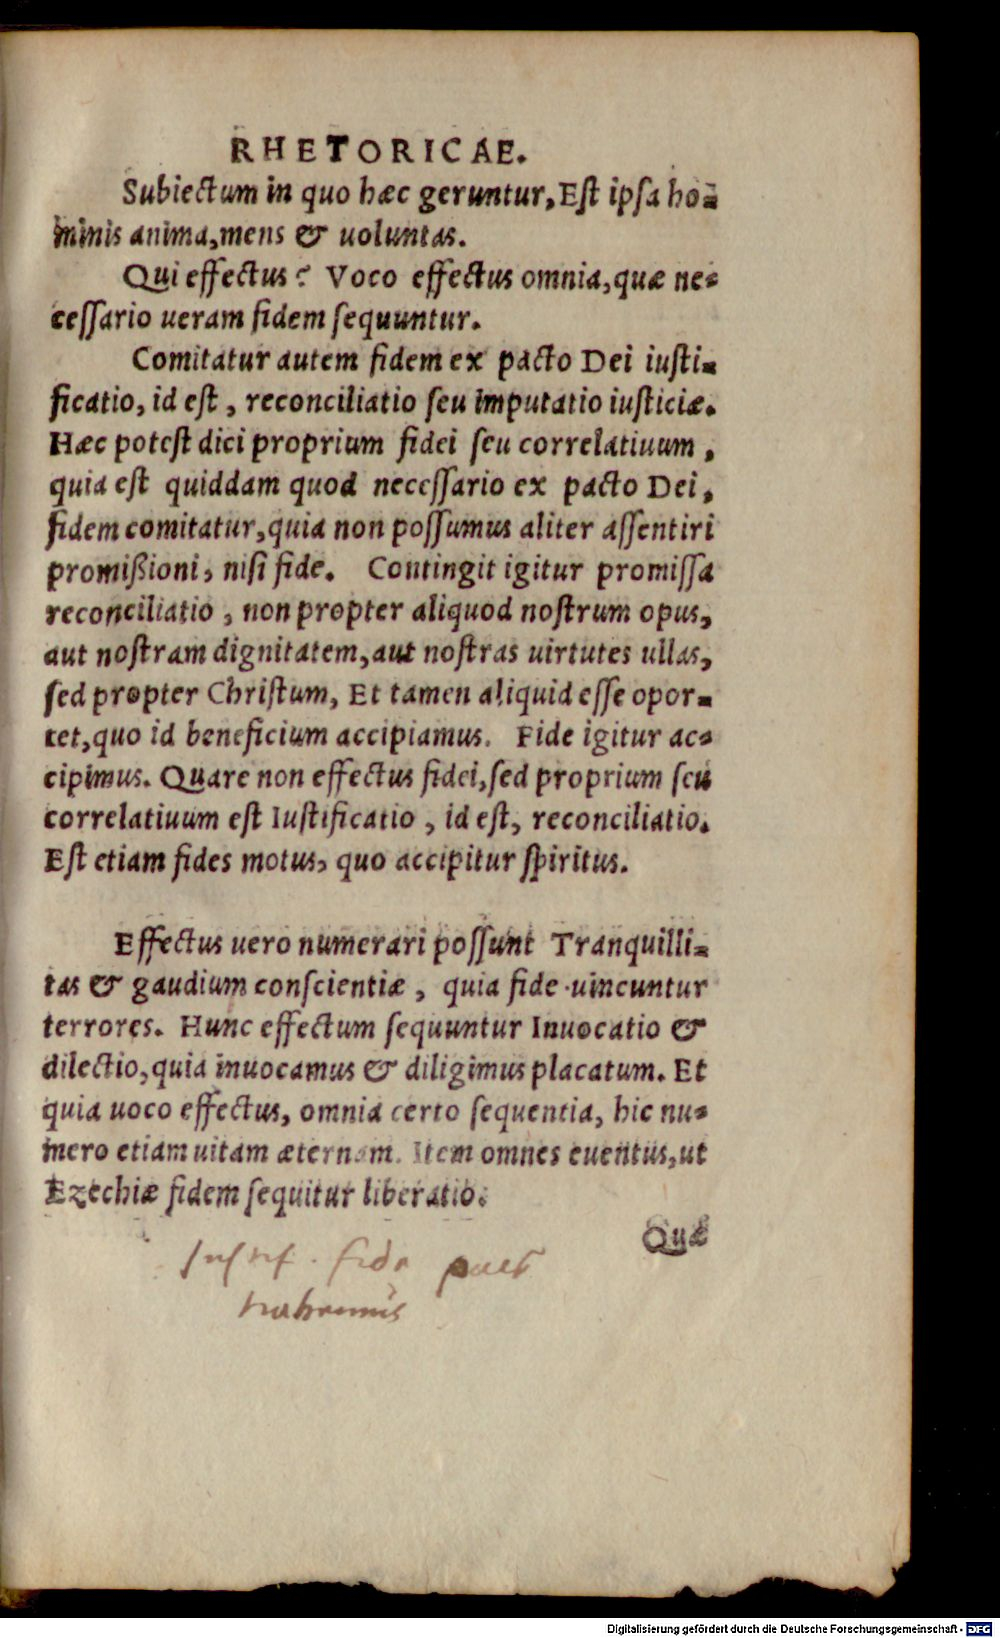 RHETORICAE.
Subiectum in quo hæc geruntur, Est ipsa ho-
minis anima, mens & uoluntas.
Qui effectus? Voco effectus omnia, quæ ne-
cessario ueram fidem sequuntur.
Comitatur autem fidem ex pacto Dei iusti-
ficatio, id est, reconciliatio seu imputatio iusticiæ.
Hæc potest dici proprium fidei seu correlatiuum,
quia est quiddam quod necessario ex pacto Dei,
fidem comitatur, quia non possumus aliter assentiri
promißioni, nisi fide. Contingit igitur promissa
reconciliatio, non propter aliquod nostrum opus,
aut nostram dignitatem, aut nostras uirtutes ullas,
sed propter Christum, Et tamen aliquid esse opor-
tet, quo id beneficium accipiamus. Fide igitur ac-
cipimus. Quare non effectus fidei, sed proprium seu
correlatiuum est Iustificatio, id est, reconciliatio.
Est etiam fides motus, quo accipitur spiritus.
Effectus uero numerari possunt Tranquilli-
tas & gaudium conscientiæ, quia fide uincuntur
terrores. Hunc effectum sequuntur Inuocatio &
dilectio, quia inuocamus & diligimus placatum. Et
quia uoco effectus, omnia certo sequentia, hic nu-
mero etiam uitam æternam. Item omnes euentus, ut
Ezechiæ fidem sequitur liberatio.
Quæ
Digitalisierung gefördert durch die Deutsche Forschungsgemeinschaft - DFG